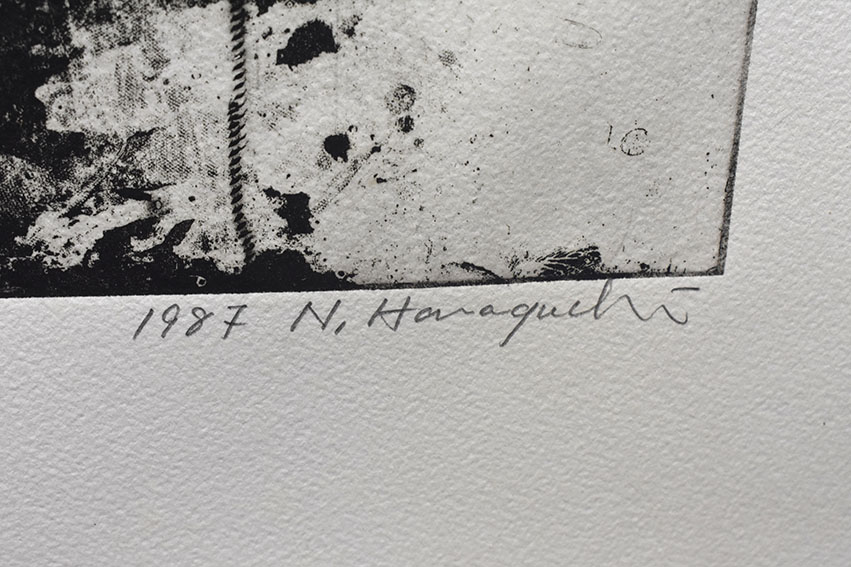 1987 N. Haraguchi